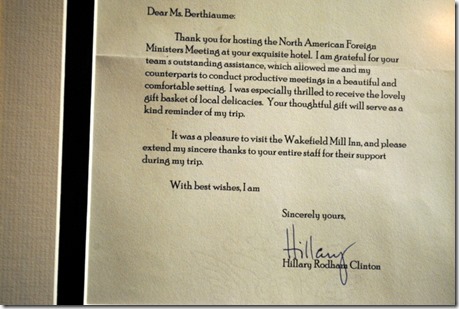 Dear Ms. Berthiaume:
Thank you for hosting the North American Foreign
Ministers Meeting at your exquisite hotel. I am grateful for your
team's outstanding assistance, which allowed me and my
counterparts to conduct productive meetings in a beautiful and
comfortable setting. I was especially thrilled to receive the lovely
gift basket of local delicacies. Your thoughtful gift will serve as a
kind reminder of my trip.
It was a pleasure to visit the Wakefield Mill Inn, and please
extend my sincere thanks to your entire staff for their support
during my trip.
With best wishes, I am
Sincerely yours,
Hillary
Hillary Rodham Clinton